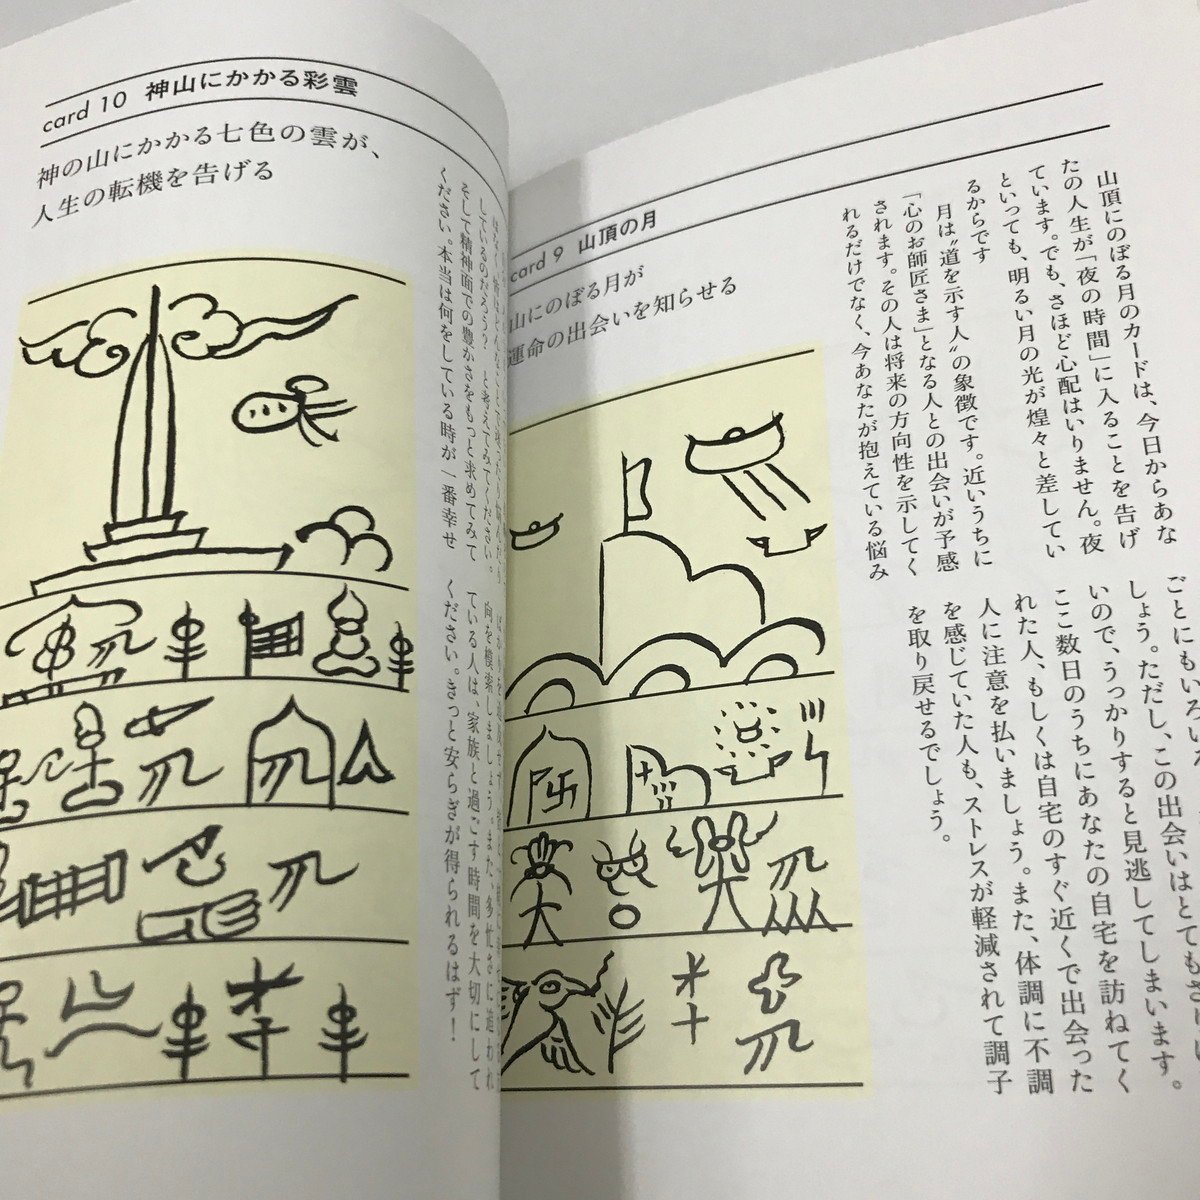 card 9 山頂の月
山にのぼる月が
運命の出会いを知らせる
山頂にのぼる月のカードは、今日からあな
たの人生が「夜の時間」に入ることを告げ
ています。でも、さほど心配はいりません。夜
といっても、明るい月の光が煌々と差してい
るからです
月は“道を示す人”の象徴です。近いうちに
「心のお師匠さま」となる人との出会いが予感
されます。その人は将来の方向性を示してく
れるだけでなく、今あなたが抱えている悩み
ごとにもいろいろ
しょう。ただし、この出会いはとてもさりげ
ないので、うっかりすると見逃してしまいます。
ここ数日のうちにあなたの自宅を訪ねてく
れた人、もしくは自宅のすぐ近くで出会った
人に注意を払いましょう。また、体調に不調
を感じていた人も、ストレスが軽減されて調子
を取り戻せるでしょう。
card 10 神山にかかる彩雲
神の山にかかる七色の雲が、
人生の転機を告げる
しているのだろう? と考えてみてください。
そして精神面での豊かさをもっと求めてみて
ください。本当は何をしている時が一番幸せ
向を模索しましょう。また、多忙さに追われ
ている人は、家族と過ごす時間を大切にして
ください。きっと安らぎが得られるはず!